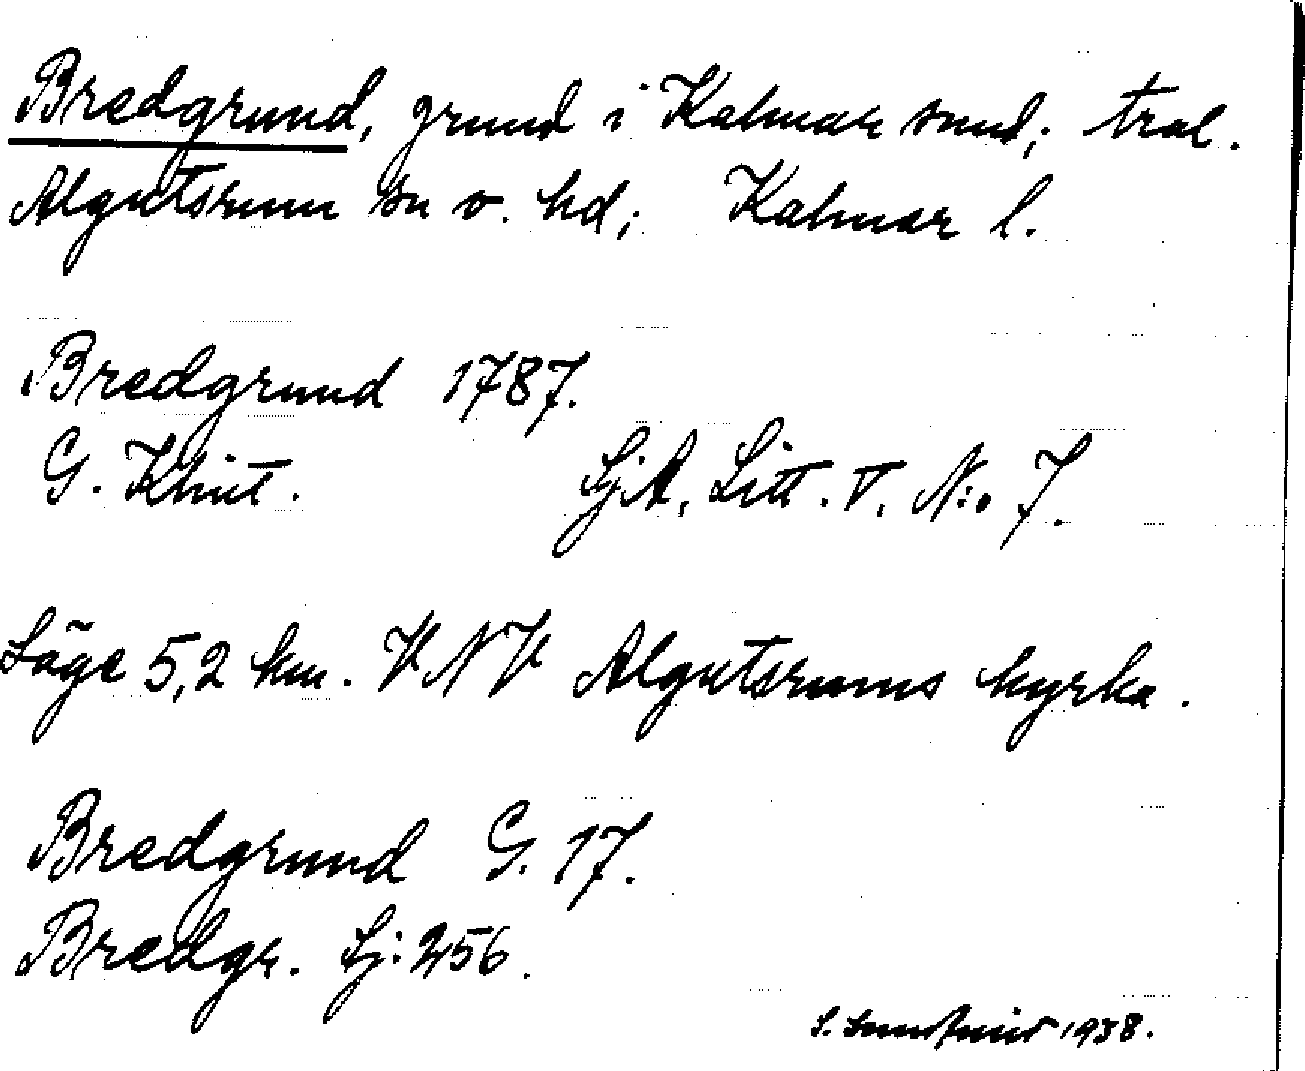 Bredgrund, grund i Kalmar sund; trol.
Algutsrum sn o. hd; Kalmar l.
Bredgrund 1787.
G. Khut. SjA, Litt. V, N:o 7.
Läge 5,2 km. VNV Algutsrums kyrka.
Bredgrund G. 17.
Bredgr. Sj: 256.
S. 1938.